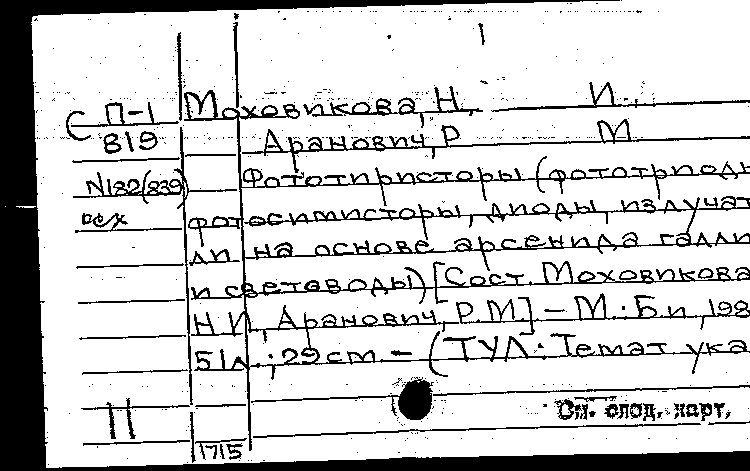 С П-1 Моховикова, Н. И.,
819 Аранович, Р М
N182(839) Фототиристоры (фототриоды
фотосимисторы, диоды, излучат
ли на основе арсенида галли
и световоды) [Сост. Моховикова
Н.И., Аранович, Р.М.] - М.: Б.и, 198
51л.; 29 cm. - (ТУЛ: Темат ука
11 См. след. карт.
1715